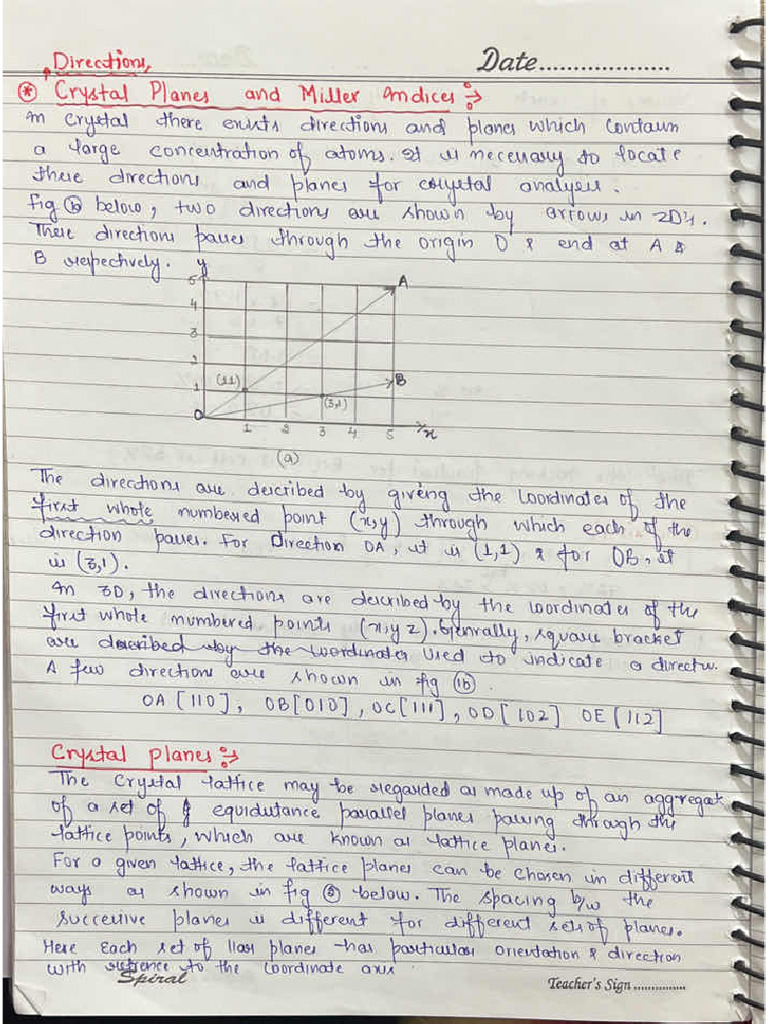 Directions,
Date...................
* Crystal Planes and Miller Indices :→
In crystal there exists directions and planes which contain
a large concentration of atoms. It is necessary to locate
these directions and planes for crystal analysis.
fig 1b below, two directions are shown by arrows in 2D's.
These directions passes through the origin O & end at A &
B respectively.
y
5
A
4
3
2
1
(1,1)
B
(3,1)
O
1 2 3 4 5
x
(a)
The directions are described by giving the coordinates of the
first whole numbered point (x,y) through which each of the
direction passes. For Direction OA, it is (1,1) & for OB, it
is (3,1).
In 3D, the directions are described by the coordinates of the
first whole numbered points (x,y z). Genrally, square bracket
are described by the coordinates used to indicate a directn.
A few directions are shown in fig 1b.
OA [110], OB[010], OC[111], OD[102] OE[112]
Crystal planes :→
The Crystal lattice may be regarded as made up of an aggregat
of a set of equidistance parallel planes passing through the
lattice points, which are known as lattice planes.
For a given lattice, the lattice planes can be chosen in different
ways as shown in fig below. The spacing b/w the
successive planes is different for different sets of planes.
Here Each set of llar planes has particular orientation & direction
with refrence to the coordinate axis
Spiral
Teacher's Sign...............